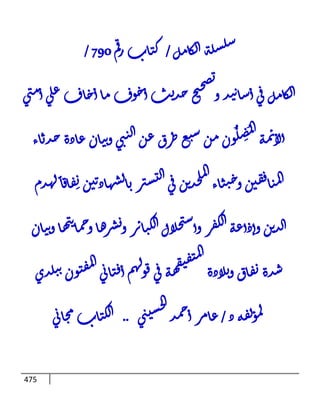 سلسلة الكامل / كتاب رقم 790 /
الكامل في أسانيد وتصحيح حديث أخوف ما أخاف علي أمتي
الأئمة المُضِلُّون من سبع طرق عن النبي وبيان عادة حدثاء
المنافقين وخبثاء الملحدين في التستر بالشهادتين نِفاقا لهدم
الدين وإذاعة الكفر واستحلال الكبائر ونشرها وحمايتها وبيان
شدة نفاق وبلادة المتفيقهة في قولهم أفتاني المفتون ببلدي
لمؤلفه د / عامر أحمد الحسيني .. الكتاب مجاني
475